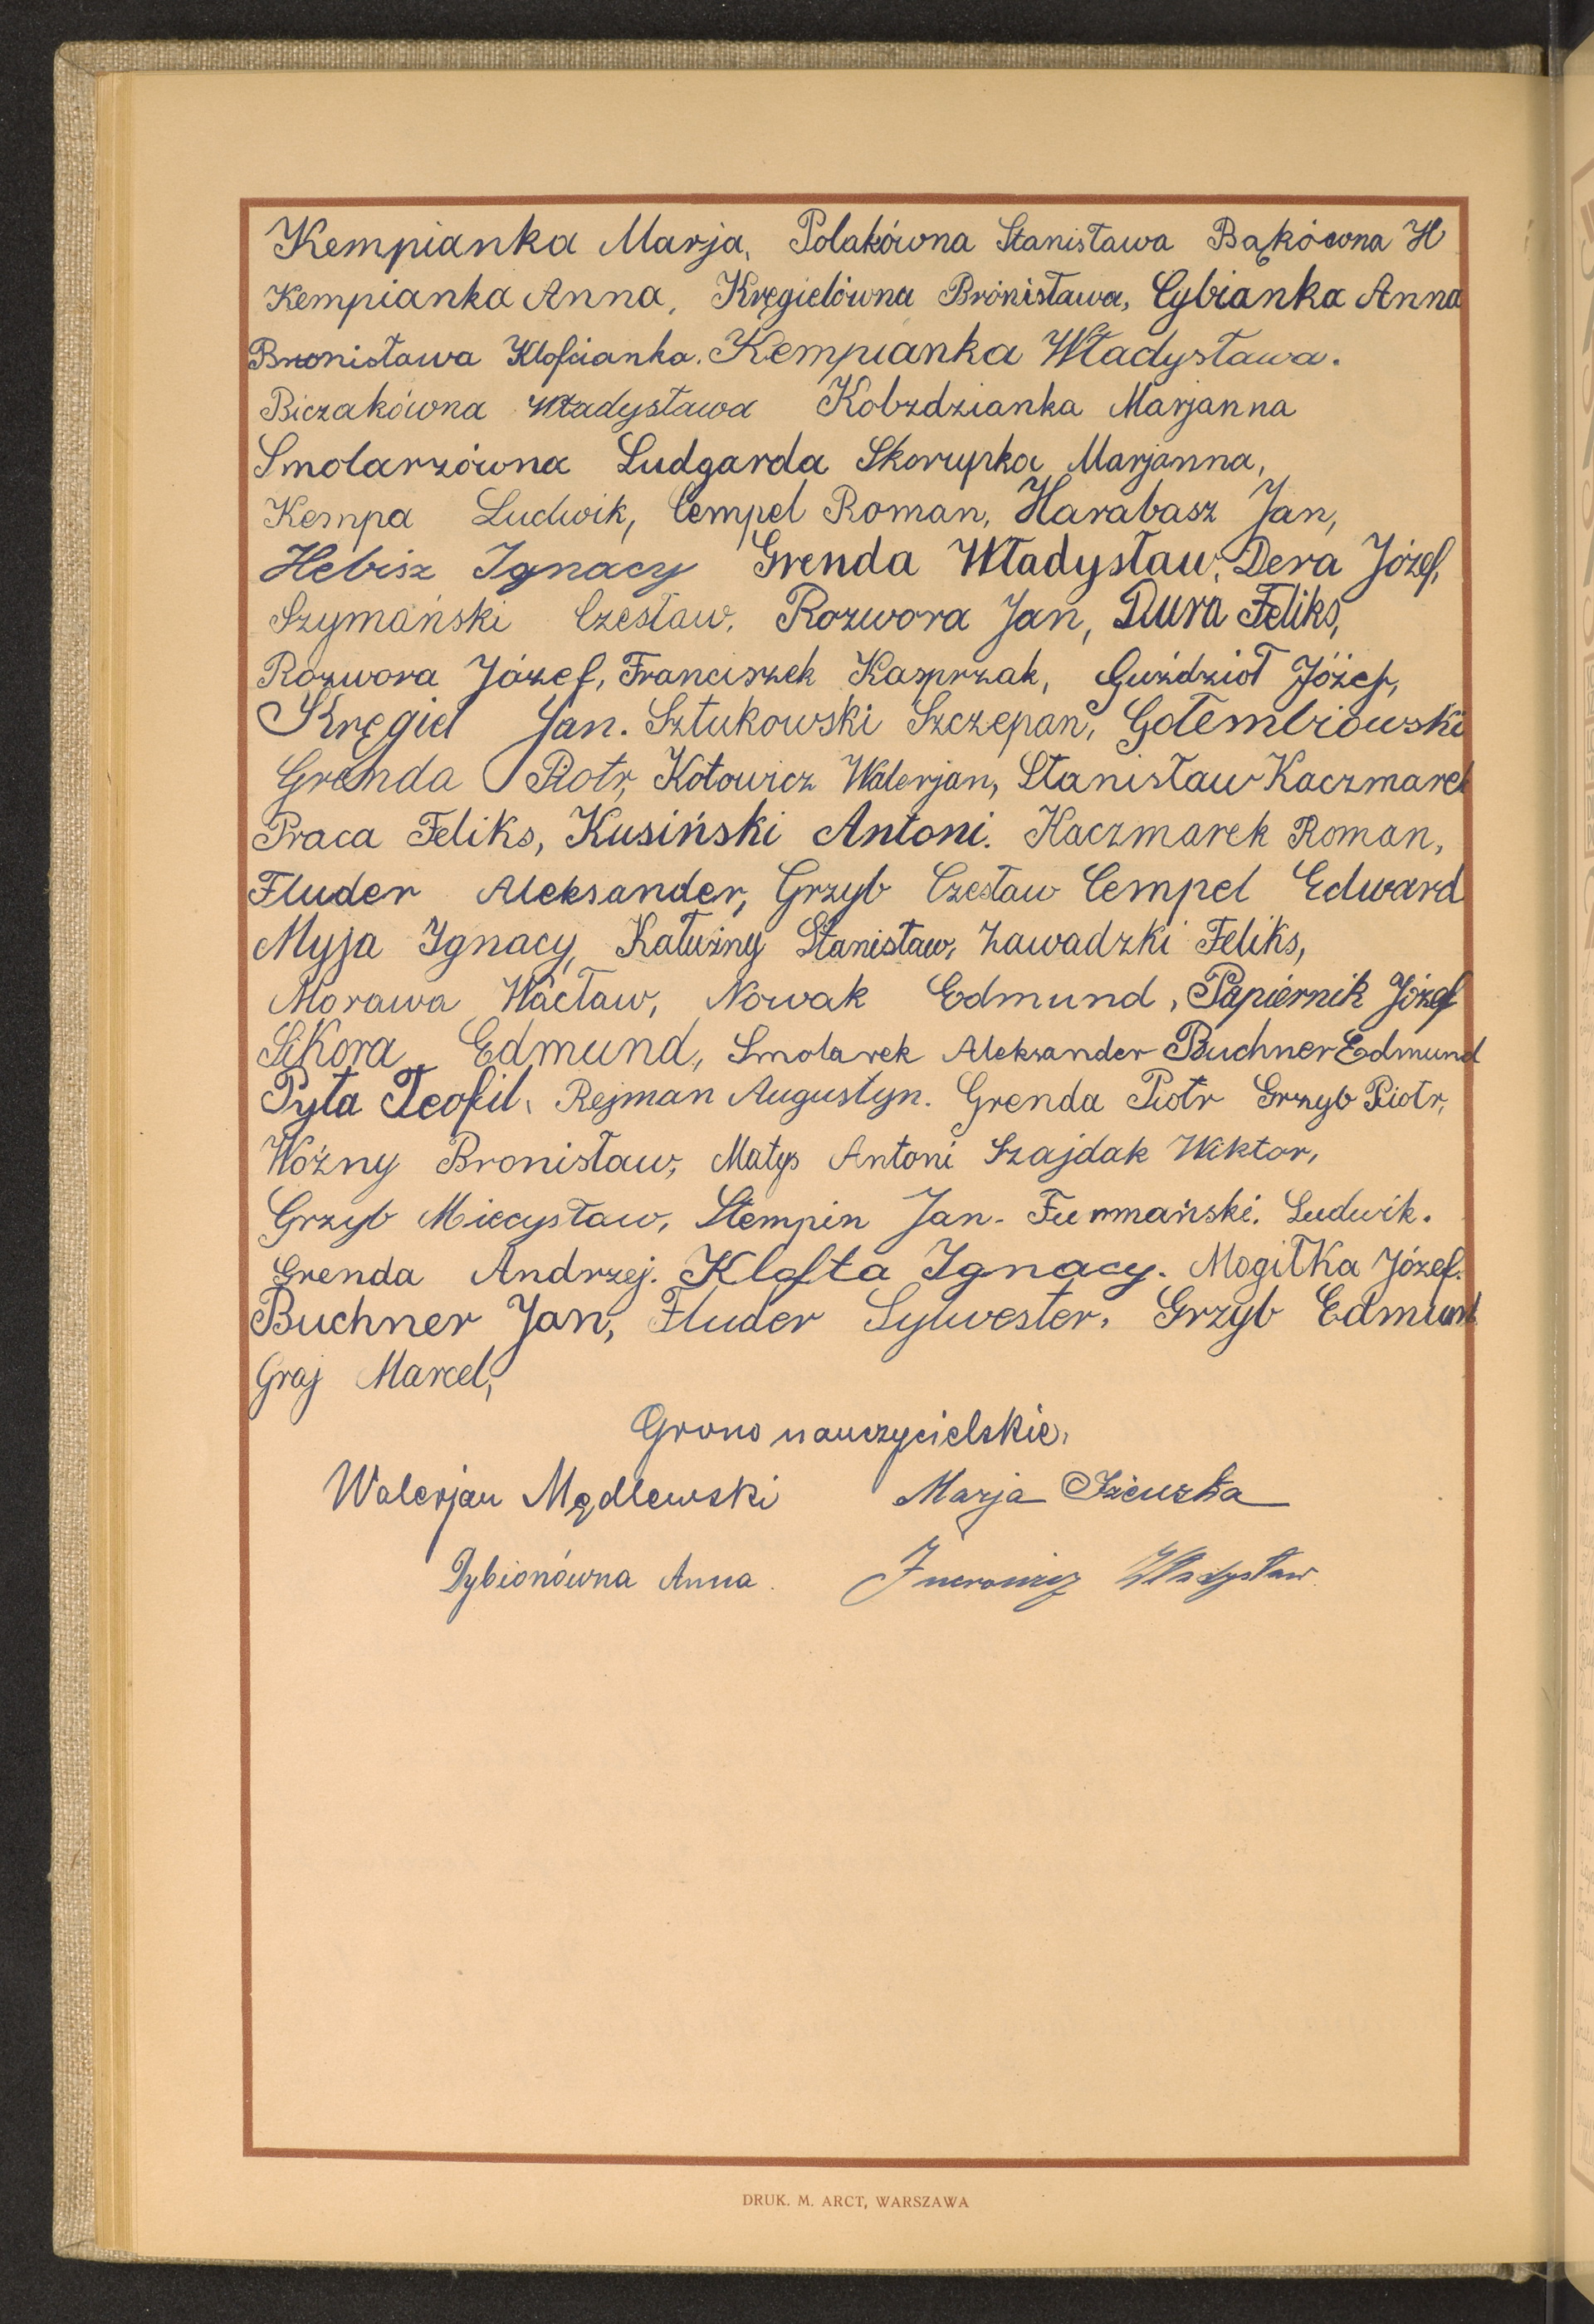 Kempianka Marja, Polakówna Stanisława Bąkówna H
Kempianka Anna, Kręgielówna Bronisława, Cybianka Anna
Bronisława Kloscianka. Kempianka Władysława.
Biczakówna Władysława Kobzdzianka Marjanna
Smolarzówna Ludgarda Skorupka Marjanna,
Kempa Ludwik, Cempel Roman, Harabasz Jan,
Hebisz Ignacy Grenda Władysław, Dera Józef,
Szymański Czesław, Rozwora Jan, Dura Feliks,
Rozwora Józef, Franciszek Kasprzak, Guździoł Józef,
Kręgiel Jan. Sztukowski Szczepan, Gołembiowski
Grenda Piotr, Kotowicz Walerjan, Stanisław Kaczmarek
Praca Feliks, Kusiński Antoni. Kaczmarek Roman,
Fluder Aleksander, Grzyb Czesław Cempel Edward
Myja Ignacy, Kałużny Stanisław, Zawadzki Feliks,
Morawa Wacław, Nowak Edmund, Papiernik Józef
Sikora Edmund, Smolarek Aleksander Buchner Edmund
Pyta Teofil, Rejman Augustyn. Grenda Piotr Grzyb Piotr,
Woźny Bronisław, Matys Antoni Szajdak Wiktor,
Grzyb Miecysław, Stempin Jan. Furmański. Ludwik.
Grenda Andrzej. Klofta Ignacy. Mogiłka Józef.
Buchner Jan, Fluder Sylwester, Grzyb Edmund
Graj Marcel,
Grono nauczycielskie,
Walerjan Mędlewski Marja
Dybionówna Anna. Władysław
DRUK. M. ARCT, WARSZAWA